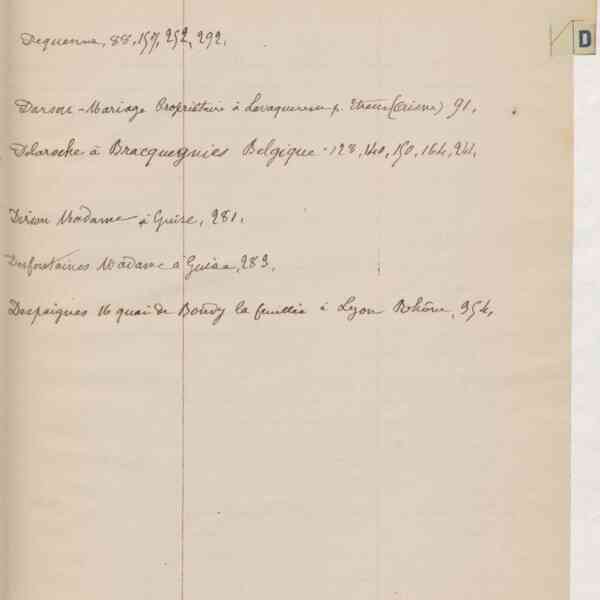 D
Dequenne, 88, 157, 252, 292.
Darson - Mariage Propriétaire à Lavaqueresse p. (Aisne) 91.
Delaroche à Bracquegnies Belgique - 128, 140, 150, 164, 241.
Madame à Guise, 281.
Desfontaines Madame à Guise, 283.
Despaignes 16 quai de Bondy la feuillée à Lyon Rhône, 354.